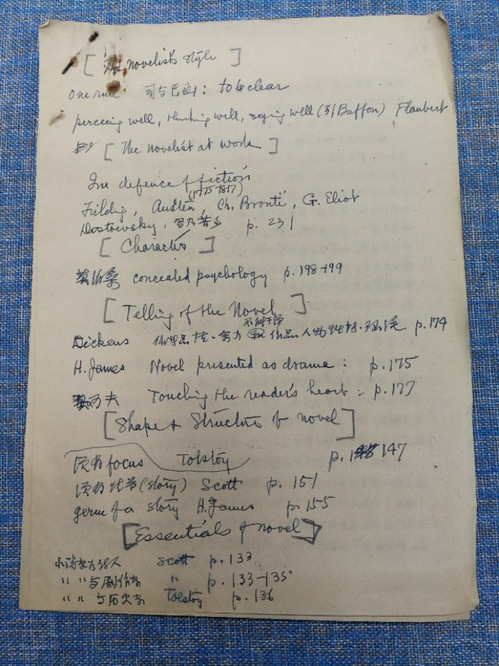 [ The novelist's style ]
One rule 司各巴函: to be clear
perceeing well, thinking well, saying well (引 Buffon) Flaubert
[ The novelist at work ]
In defence of fiction
(1775-1817)
Fielding, Austen, Ch. Brontë, G. Eliot
Dostoevsky, p. 231
[ Character ]
concealed psychology p. 198-199
[ Telling of the Novel ]
Dickens p. 174
H. James Novel presented as drama: p. 175
Touching the reader's heart: p. 177
[ Shape & Structure of novel ]
focus Tolstoy p. 147
(story) Scott p. 151
germ of a story H. James p. 155
[ Essentials of novel ]
Scott p. 133
" " 与剧作家 " p. 133-135
" " 与历史家 Tolstoy p. 136